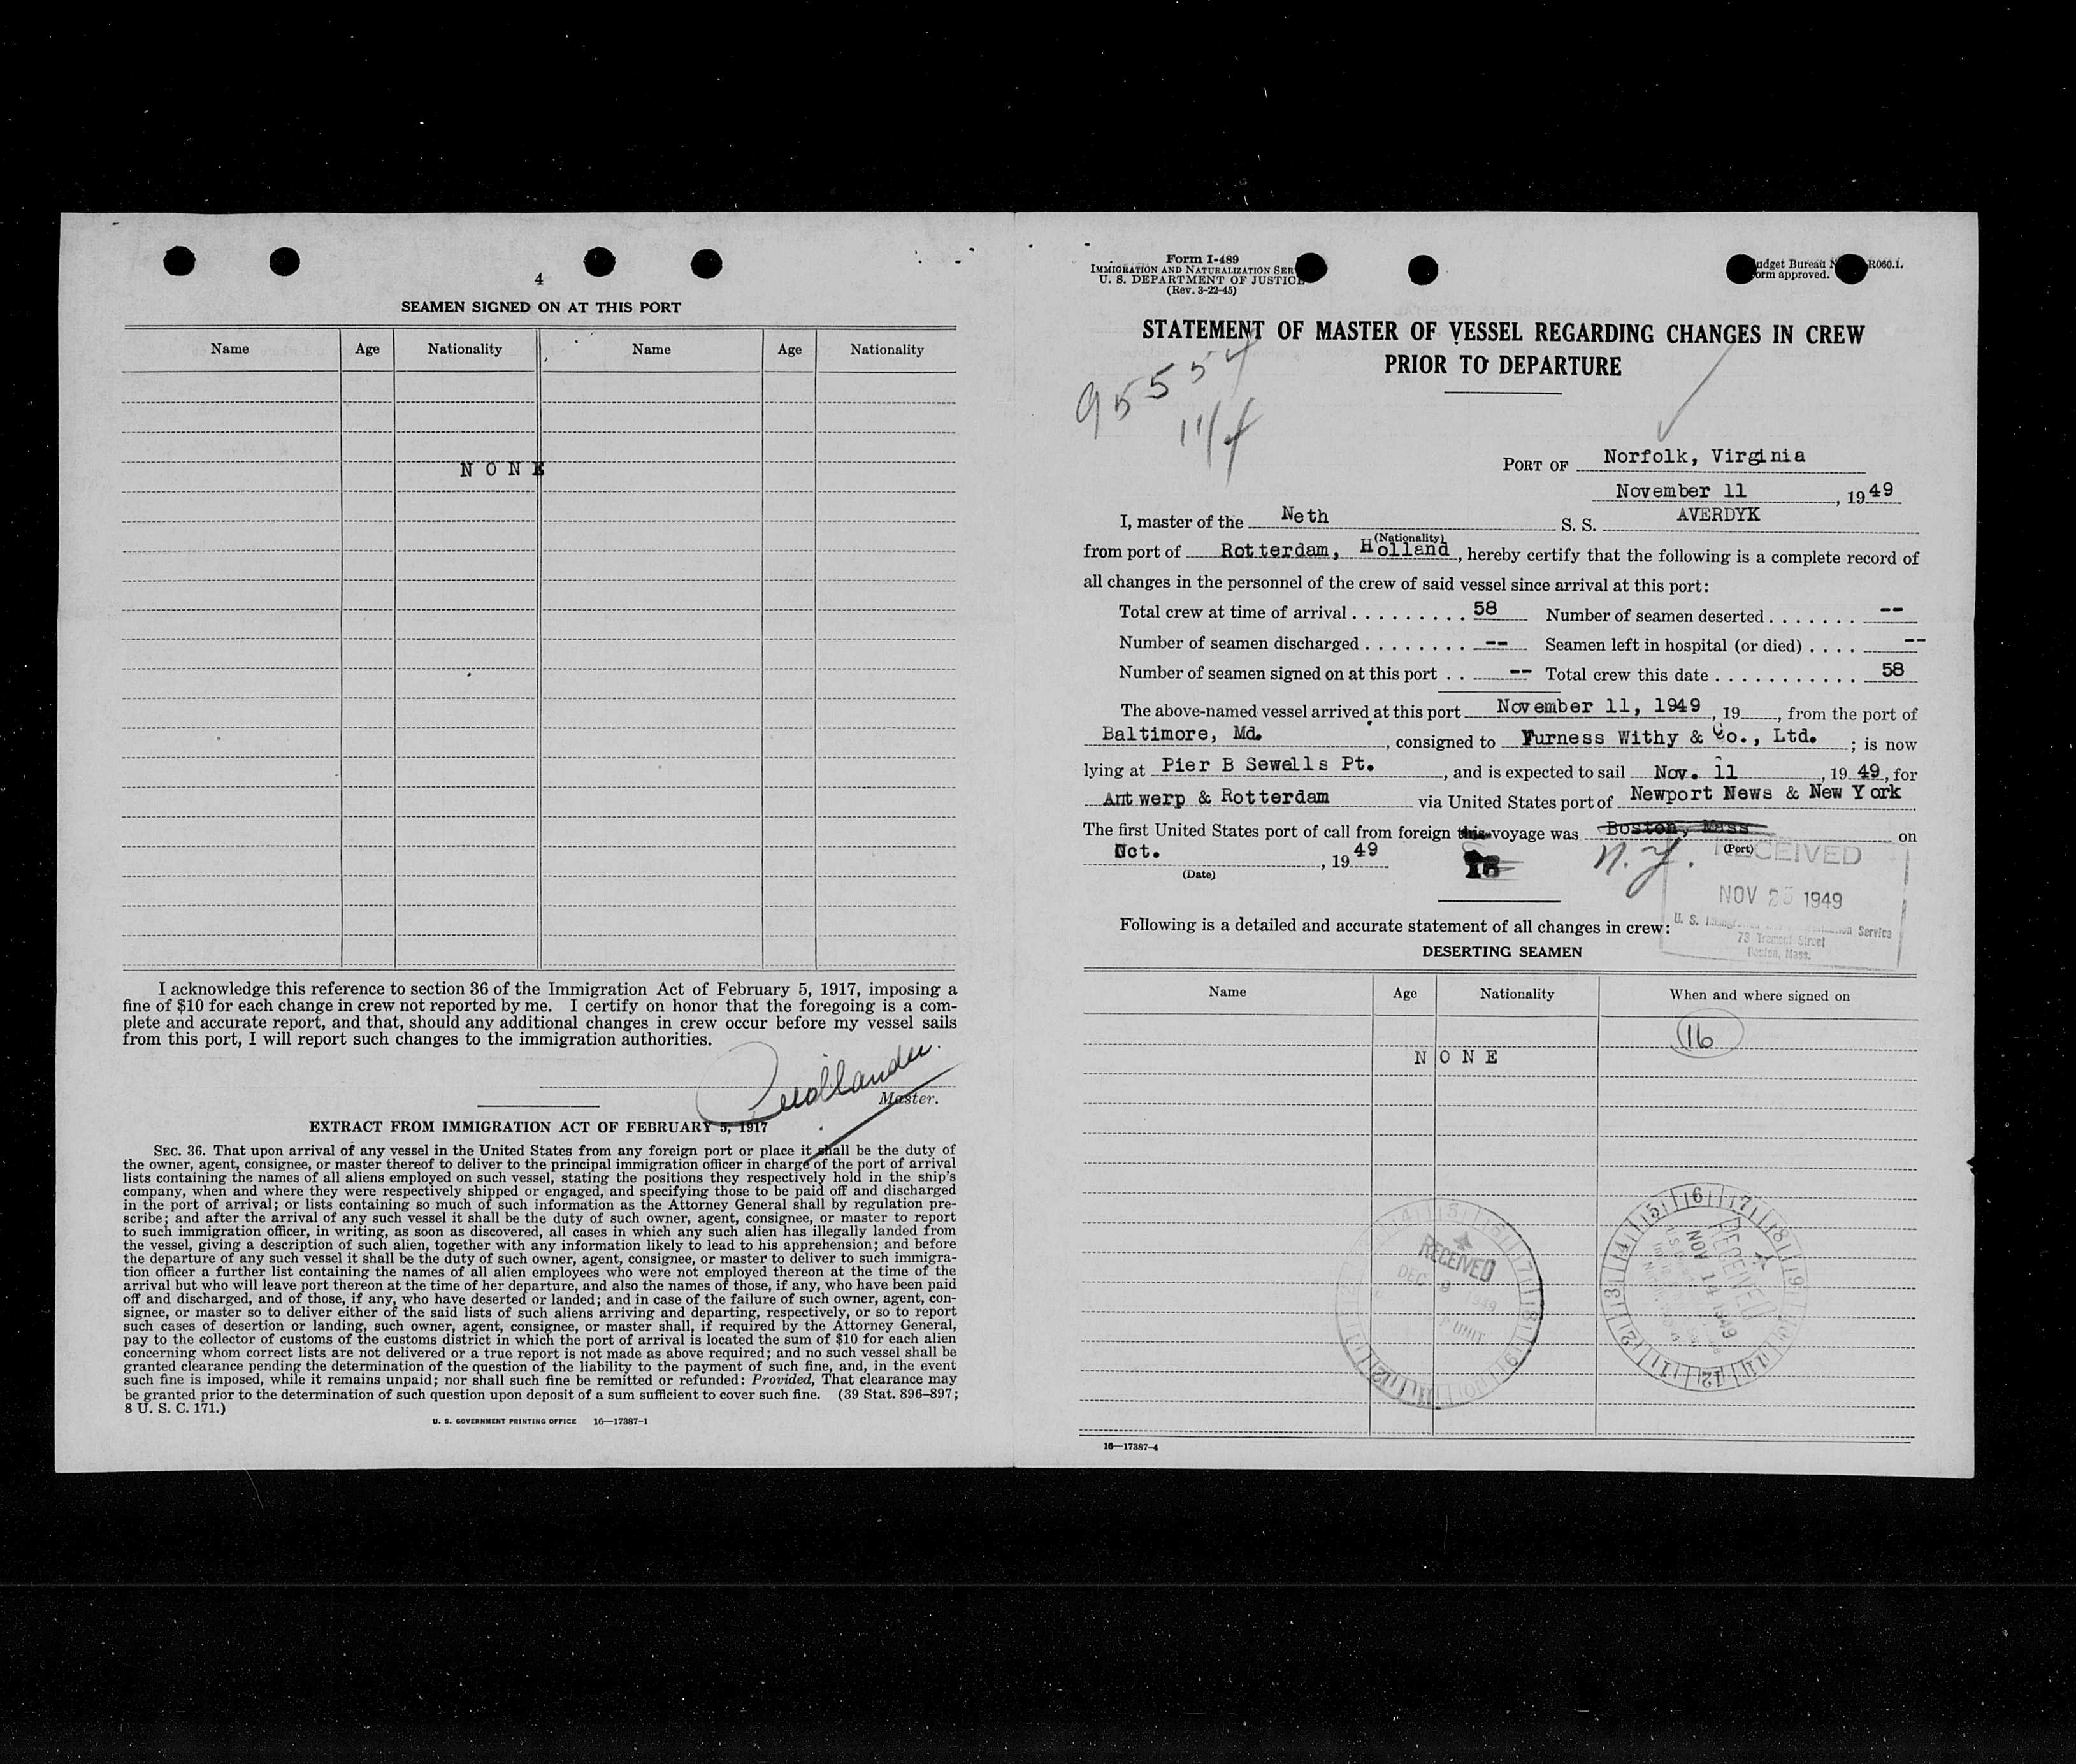 4
SEAMEN SIGNED ON AT THIS PORT
Name Age Nationality Name Age Nationality
N O N E
I acknowledge this reference to section 36 of the Immigration Act of February 5, 1917, imposing a
fine of $10 for each change in crew not reported by me. I certify on honor that the foregoing is a com-
plete and accurate report, and that, should any additional changes in crew occur before my vessel sails
from this port, I will report such changes to the immigration authorities.
Master.
EXTRACT FROM IMMIGRATION ACT OF FEBRUARY 5, 1917
SEC. 36. That upon arrival of any vessel in the United States from any foreign port or place it shall be the duty of
the owner, agent, consignee, or master thereof to deliver to the principal immigration officer in charge of the port of arrival
lists containing the names of all aliens employed on such vessel, stating the positions they respectively hold in the ship's
company, when and where they were respectively shipped or engaged, and specifying those to be paid off and discharged
in the port of arrival; or lists containing so much of such information as the Attorney General shall by regulation pre-
scribe; and after the arrival of any such vessel it shall be the duty of such owner, agent, consignee, or master to report
to such immigration officer, in writing, as soon as discovered, all cases in which any such alien has illegally landed from
the vessel, giving a description of such alien, together with any information likely to lead to his apprehension; and before
the departure of any such vessel it shall be the duty of such owner, agent, consignee, or master to deliver to such immigra-
tion officer a further list containing the names of all alien employees who were not employed thereon at the time of the
arrival but who will leave port thereon at the time of her departure, and also the names of those, if any, who have been paid
off and discharged, and of those, if any, who have deserted or landed; and in case of the failure of such owner, agent, con-
signee, or master so to deliver either of the said lists of such aliens arriving and departing, respectively, or so to report
such cases of desertion or landing, such owner, agent, consignee, or master shall, if required by the Attorney General,
pay to the collector of customs of the customs district in which the port of arrival is located the sum of $10 for each alien
concerning whom correct lists are not delivered or a true report is not made as above required; and no such vessel shall be
granted clearance pending the determination of the question of the liability to the payment of such fine, and, in the event
such fine is imposed, while it remains unpaid; nor shall such fine be remitted or refunded: Provided, That clearance may
be granted prior to the determination of such question upon deposit of a sum sufficient to cover such fine. (39 Stat. 896-897;
8 U. S. C. 171.)
U. S. GOVERNMENT PRINTING OFFICE 16—17387-1
Form I-489
IMMIGRATION AND NATURALIZATION SER
U. S. DEPARTMENT OF JUSTICE
(Rev. 3-22-45)
udget Bureau N R060.1.
orm approved.
STATEMENT OF MASTER OF VESSEL REGARDING CHANGES IN CREW
PRIOR TO DEPARTURE
95554
11/4
PORT OF Norfolk, Virginia
November 11, 1949
I, master of the Neth S. S. AVERDYK
(Nationality)
from port of Rotterdam, Holland, hereby certify that the following is a complete record of
all changes in the personnel of the crew of said vessel since arrival at this port:
Total crew at time of arrival . . . . . . . . . 58 Number of seamen deserted . . . . . . . --
Number of seamen discharged . . . . . . . . -- Seamen left in hospital (or died) . . . . --
Number of seamen signed on at this port . . -- Total crew this date . . . . . . . . . . . 58
The above-named vessel arrived at this port November 11, 1949, 19, from the port of
Baltimore, Md., consigned to Furness Withy & Co., Ltd.; is now
lying at Pier B Sewells Pt., and is expected to sail Nov. 11, 19 49, for
Antwerp & Rotterdam via United States port of Newport News & New York
The first United States port of call from foreign this voyage was Boston, Mass on
(Port)
Oct. , 19 49 N.Y.
(Date)
RECEIVED
NOV 25 1949
U. S. Service
73 Tremont Street
Boston, Mass.
Following is a detailed and accurate statement of all changes in crew:
DESERTING SEAMEN
Name Age Nationality When and where signed on
16
N O N E
RECEIVED
DEC 9 1949
UNIT
RECEIVED
NOV 14 1949
16—17387-4